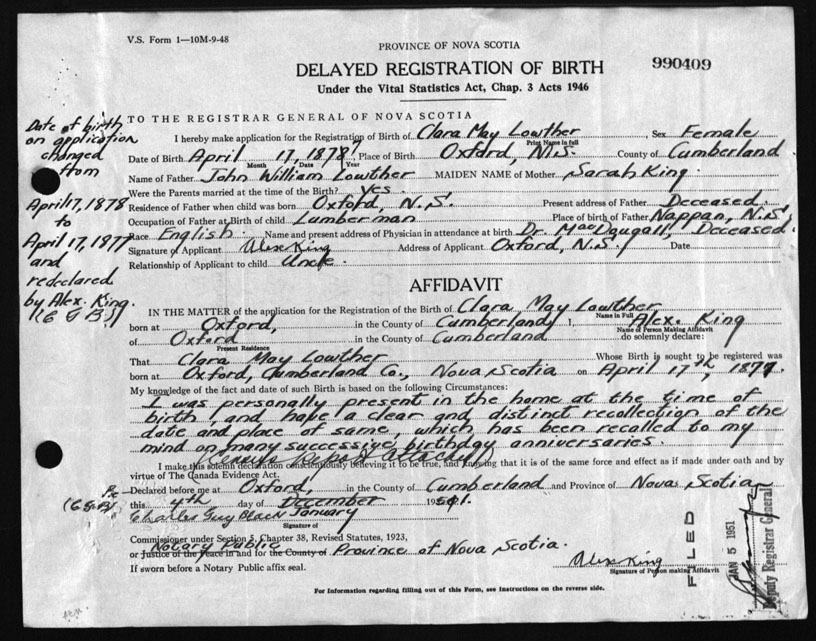 V.S. Form 1—10M-9-48
PROVINCE OF NOVA SCOTIA
DELAYED REGISTRATION OF BIRTH
990409
Under the Vital Statistics Act, Chap. 3 Acts 1946
TO THE REGISTRAR GENERAL OF NOVA SCOTIA
Date of birth on application changed from April 17, 1878 to April 17, 1877 and redeclared by Alex. King. (C G B.)
I hereby make application for the Registration of Birth of Clara May Lowther, Sex Female
Print Name in full
Date of Birth April 17, 1878 7, Place of Birth Oxford, N.S. County of Cumberland
Month Date Year
Name of Father John William Lowther MAIDEN NAME of Mother Sarah King.
Were the Parents married at the time of the Birth? Yes.
Residence of Father when child was born Oxford, N.S. Present address of Father Deceased.
Occupation of Father at Birth of child Lumberman Place of birth of Father Nappan, N.S.
Race English. Name and present address of Physician in attendance at birth Dr. MacDougall, Deceased.
Signature of Applicant Alex King Address of Applicant Oxford, N.S. Date
Relationship of Applicant to child Uncle.
AFFIDAVIT
IN THE MATTER of the application for the Registration of the Birth of Clara May Lowther
Name in Full
born at Oxford, in the County of Cumberland, I, Alex. King
Name of Person Making Affidavit
of Oxford in the County of Cumberland do solemnly declare:
Present Residence
That Clara May Lowther Whose Birth is sought to be registered was
born at Oxford, Cumberland Co., Nova Scotia on April 17th, 1877.
My knowledge of the fact and date of such Birth is based on the following Circumstances:
I was personally present in the home at the time of
birth, and have a clear and distinct recollection of the
date and place of same, which has been recalled to my
mind on many successive birthday anniversaries.
(Census Report attached)
I make this solemn declaration conscientiously believing it to be true, and knowing that it is of the same force and effect as if made under oath and by
virtue of The Canada Evidence Act.
Declared before me at Oxford, in the County of Cumberland and Province of Nova Scotia
this 4th day of December 1951.
Charles Guy Black January
Signature of
Commissioner under Section 5, Chapter 38, Revised Statutes, 1923,
Notary Public
or Justice of the peace in and for the County of Province of Nova Scotia.
If sworn before a Notary Public affix seal.
Alex King
Signature of Person making Affidavit
FILED
JAN 5 1951
Deputy Registrar General
For Information regarding filling out of this Form, see Instructions on the reverse side.